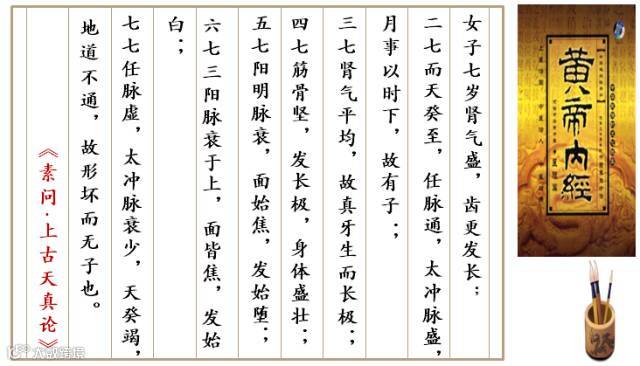 女子七岁肾气盛，齿更发长；
二七而天癸至，任脉通，太冲脉盛，
月事以时下，故有子；，
三七肾气平均，故真牙生而长极；，
四七筋骨坚，发长极，身体盛壮；，
五七阳明脉衰，面始焦，发始堕；，
六七三阳脉衰于上，面皆焦，发始
白；，
七七任脉虚，太冲脉衰少，天癸竭，
地道不通，故形坏而无子也。
《素问·上古天真论》
黄帝内經